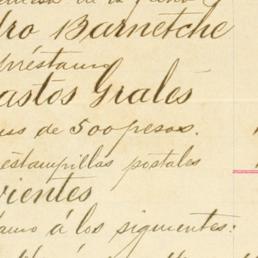 de la
dro Barnetche
préstamo
astos Grales
de 500 pesos.
estampillas postales
vientes
á los siguientes: